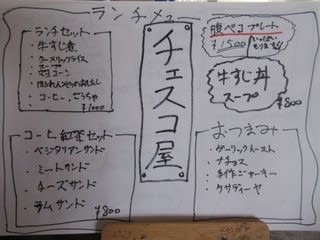 ランチメニュー
ランチセット
・牛すじ煮
・ターメリックライス
・スープ
・コーン
・ほうれんそうのおひたし
・コーヒー、こうちゃ
¥1000
チェスコ屋
腹ペコプレート
¥1500
いっぱい
もります!!
牛すじ丼
スープ
¥800
コーヒー紅茶セット
・ベジタリアンサンド
・ミートサンド
・チーズサンド
・ラムサンド
¥800
おつまみ
・ガーリックトースト
・ナチョス
・手作ジャーキー
・ケサディーヤ